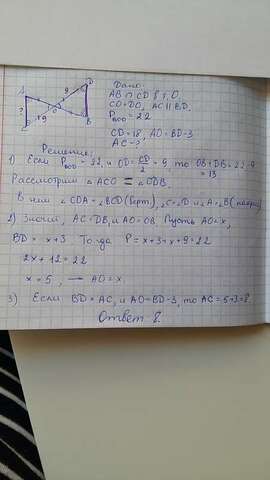 A
D
9
?
O
C
9
B
Дано:
AB ∩ CD в т. O,
CO=DO, AC ∥ BD.
P BOD = 22
CD=18, AO=BD-3
AC-?
Решение:
1) Если P BOD = 22, и OD = CD/2 = 9, то OB+DB = 22-9 = 13
Рассмотрим △ACO = △ODB.
2) Значит, AC=DB, и AO=OB. Пусть AO=x,
BD = x+3 Тогда P = x+3+x+9=22
2x + 12 = 22
x = 5, → AO=x.
3) Если BD=AC, и AO=BD-3, то AC=5+3=8
Ответ 8.